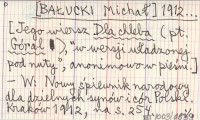 [BAŁUCKI Michał] 1912...
[Jego wiersz Dla chleba (pt.
Góral!), "w wersji układzonej
pod nutę", anonimowo w pieśni.]
- W: Nowy śpiewnik narodowy
dla dzielnych synów i cór Polski.
Kraków 1912, na s. 25